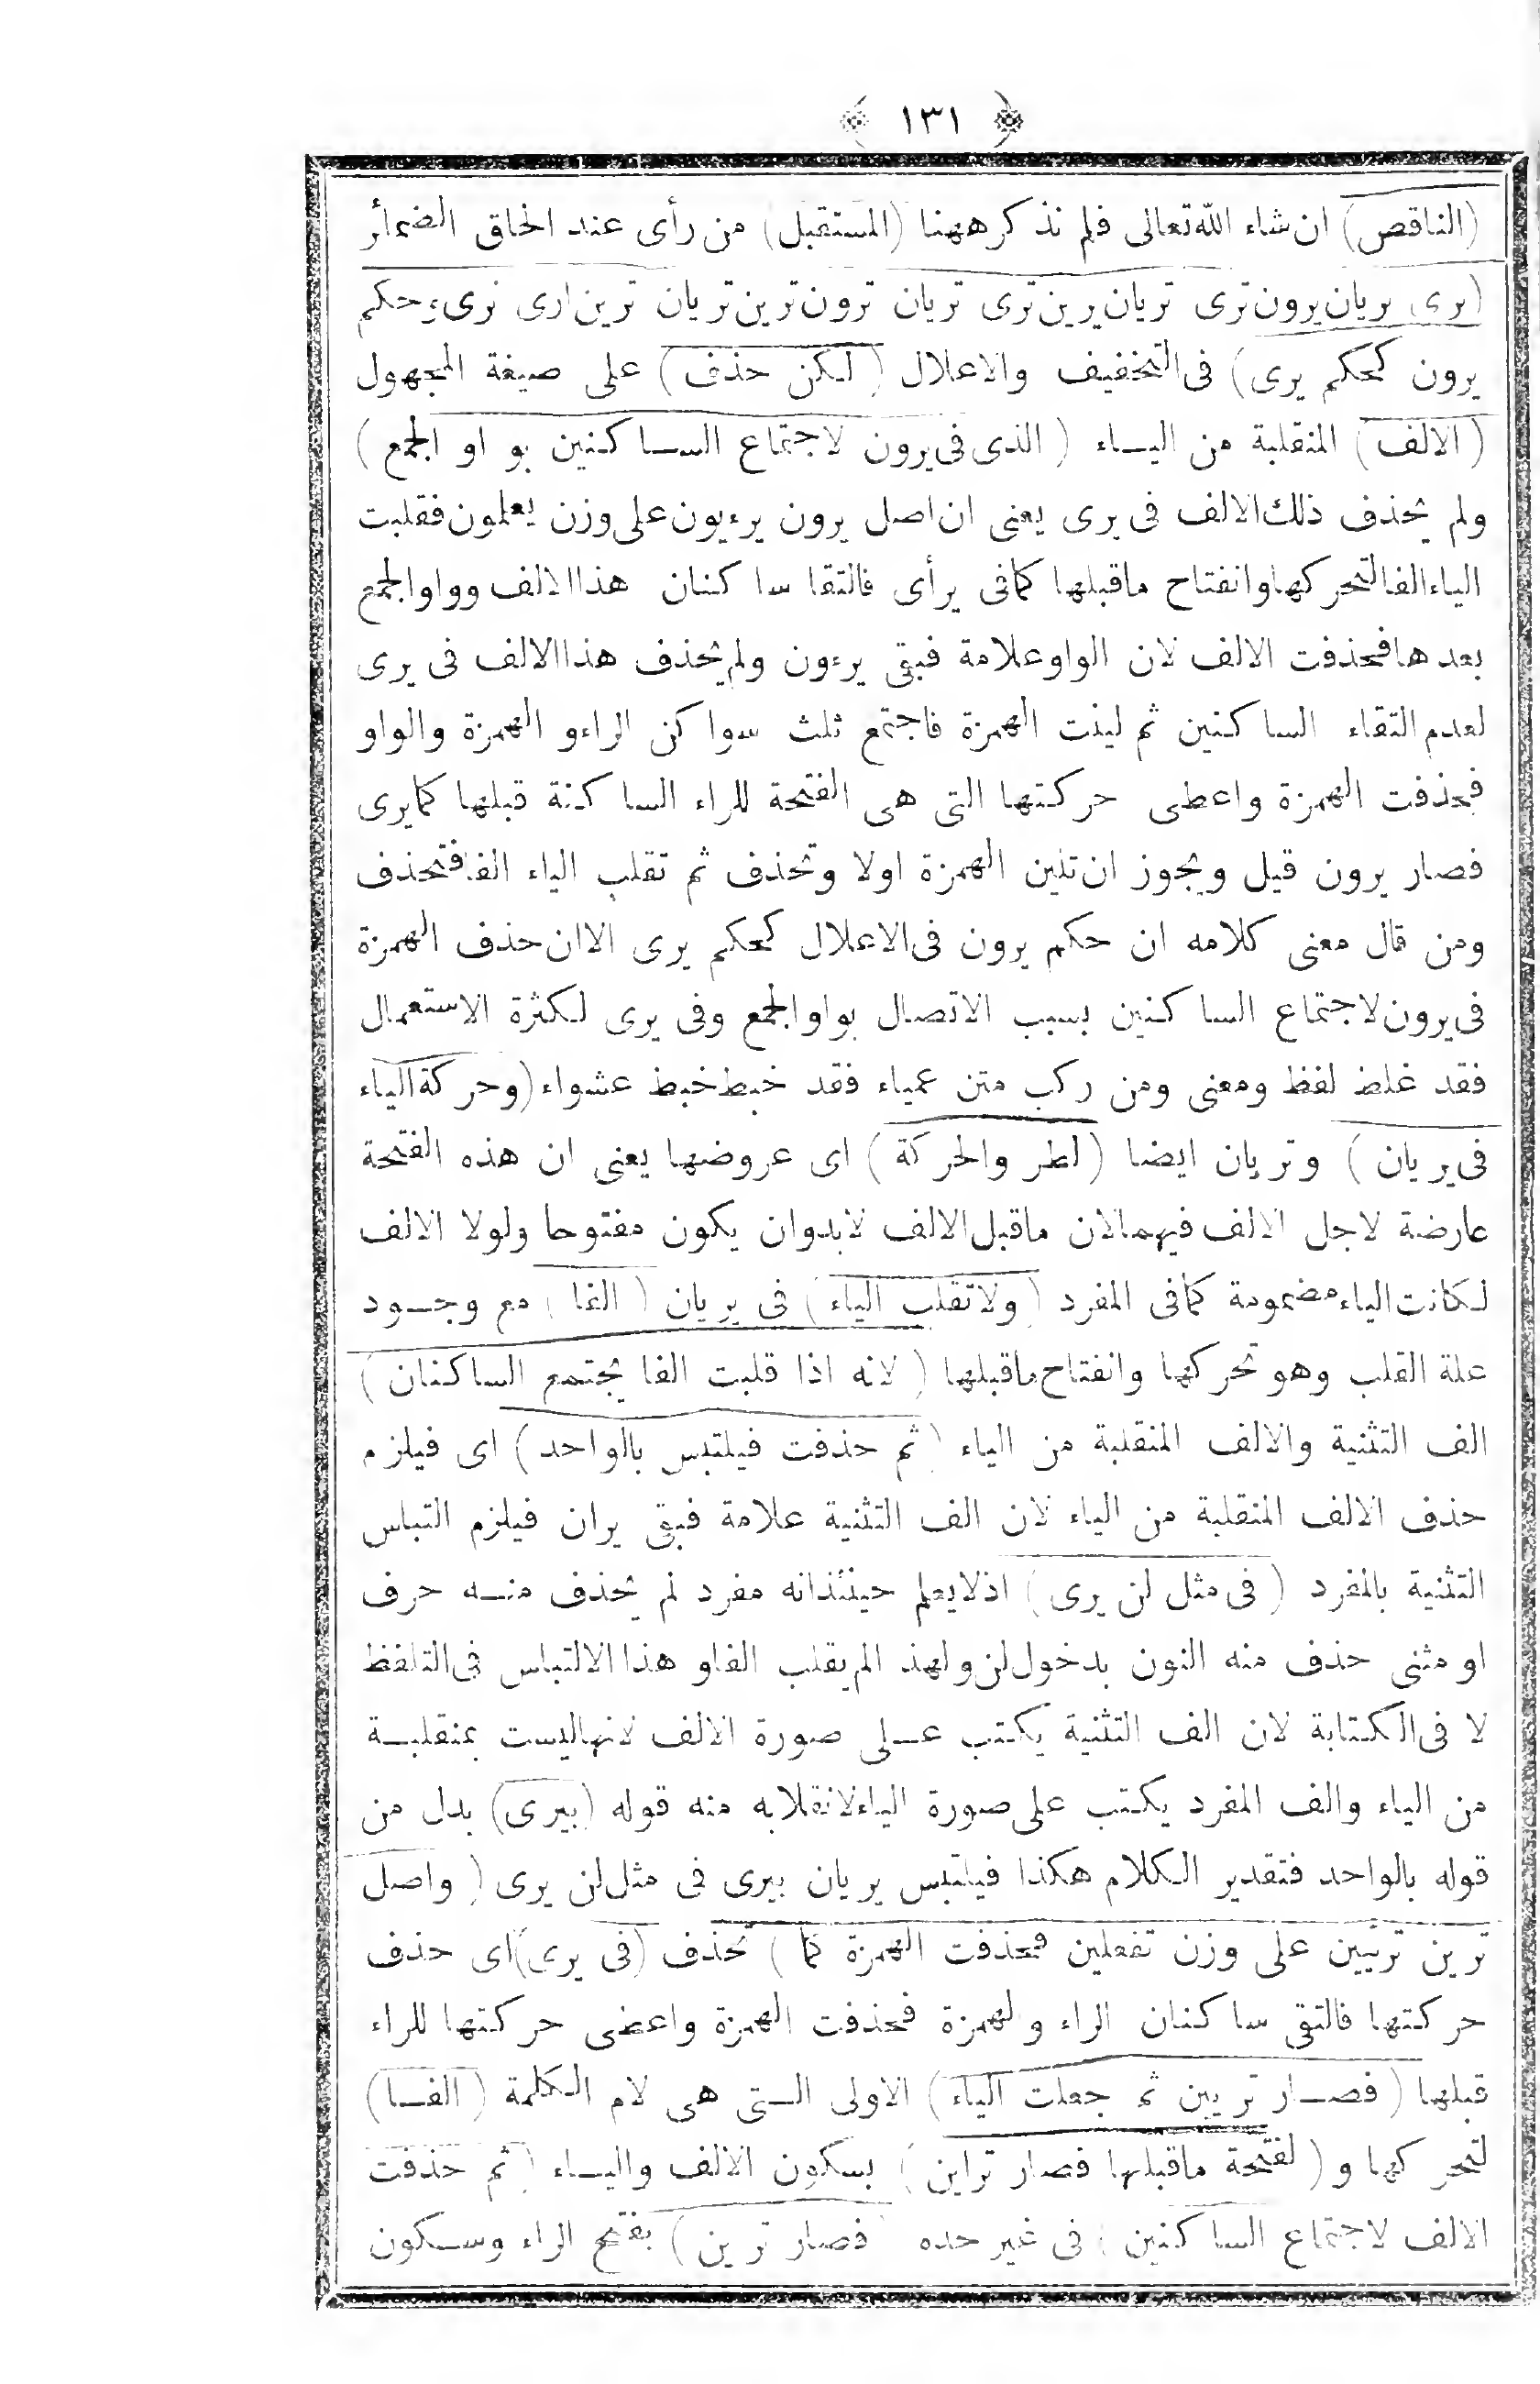 ١٣١
(الناقص) ان شاء الله تعالى فلم نذكر ههنا (المستقبل) من رأى عند الحاق الضمائر
(يرى يريان يرون ترى تريان يرين ترى تريان ترون ترين تريان ترين ارى نرى وحكم
يرون كحكم يرى) فى التخفيف والاعلال (لكن حذف) على صيغة المجهول
(الالف) المنقلبة من الياء (الذى فى يرون لاجتماع الساكنين بواو الجمع)
ولم يحذف ذلك الالف فى يرى يعنى ان اصل يرون يرءيون على وزن يعلمون فقلبت
الياء الفا لتحركها وانفتاح ماقبلها كمافى يرأى فالتقا ساكنان هذا الالف وواو الجمع
بعدها فحذفت الالف لان الواو علامة فبقى يرءون ولم يحذف هذا الالف فى يرى
لعدم التقاء الساكنين ثم لينت الهمزة فاجتمع ثلث سواكن الراء و الهمزة والواو
فحذفت الهمزة واعطى حركتها التى هى الفتحة للراء الساكنة قبلها كمايرى
فصار يرون قيل ويجوز ان تلين الهمزة اولا وتحذف ثم تقلب الياء الفا فتحذف
ومن قال معنى كلامه ان حكم يرون فى الاعلال كحكم يرى الا ان حذف الهمزة
فى يرون لاجتماع الساكنين بسبب الاتصال بواو الجمع وفى يرى لكثرة الاستعمال
فقد غلط لفظ ومعنى ومن ركب متن عمياء فقد خبط خبط عشواء (وحركة الياء
فى يريان) وتريان ايضا (لطر والحركة) اى عروضها يعنى ان هذه الفتحة
عارضة لاجل الالف فيهما لان ماقبل الالف لابدوان يكون مفتوحا ولولا الالف
لكانت الياء مضمومة كمافى المفرد (ولاتقلب الياء) فى يريان (الفا) مع وجود
علة القلب وهو تحركها وانفتاح ماقبلها (لانه اذا قلبت الفا يجتمع الساكنان)
الف التثنية والالف المنقلبة من الياء (ثم حذفت فيلتبس بالواحد) اى فيلزم
حذف الالف المنقلبة من الياء لان الف التثنية علامة فبقى يران فيلزم التباس
التثنية بالمفرد (فى مثل لن يرى) اذ لايعلم حينئذ انه مفرد لم يحذف منه حرف
او مثنى حذف منه النون بدخول لن ولهذ الم يقلب الفا و هذا الالتباس فى التلفظ
لا فى الكتابة لان الف التثنية يكتب على صورة الالف لانها ليست بمنقلبة
من الياء والف المفرد يكتب على صورة الياء لانقلابه منه قوله (بيرى) بدل من
قوله بالواحد فتقدير الكلام هكذا فيلتبس يريان بيرى فى مثل لن يرى (واصل
ترين ترئيين على وزن تفعلين فحذفت الهمزة كما) تحذف (فى يرى) اى حذف
حركتها فالتقى ساكنان الراء و لهمزة فحذفت الهمزة واعطى حركتها للراء
قبلها (فصار تريين ثم جعلت الياء) الاولى التى هى لام الكلمة (الفا)
لتحركها و (لفتحة ماقبلها فصار تراين) بسكون الالف والياء (ثم حذفت
الالف لاجتماع الساكنين) فى غير حده (فصار ترين) بفتح الراء وسكون